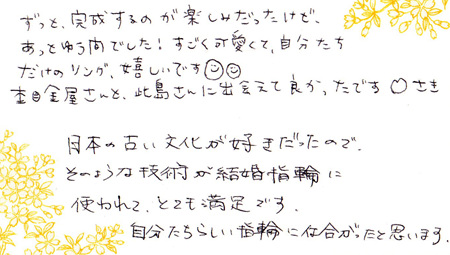 ずっと、完成するのが楽しみだったけど、
あっとゆう間でした！すごく可愛くて、自分たち
だけのリング、嬉しいです☺☺
杢目金屋さんと、此島さんに出会えて良かったです♡さき
日本の古い文化が好きだったので、
そのような技術が結婚指輪に
使われて、とても満足です。
自分たちらしい指輪に仕合がったと思います。